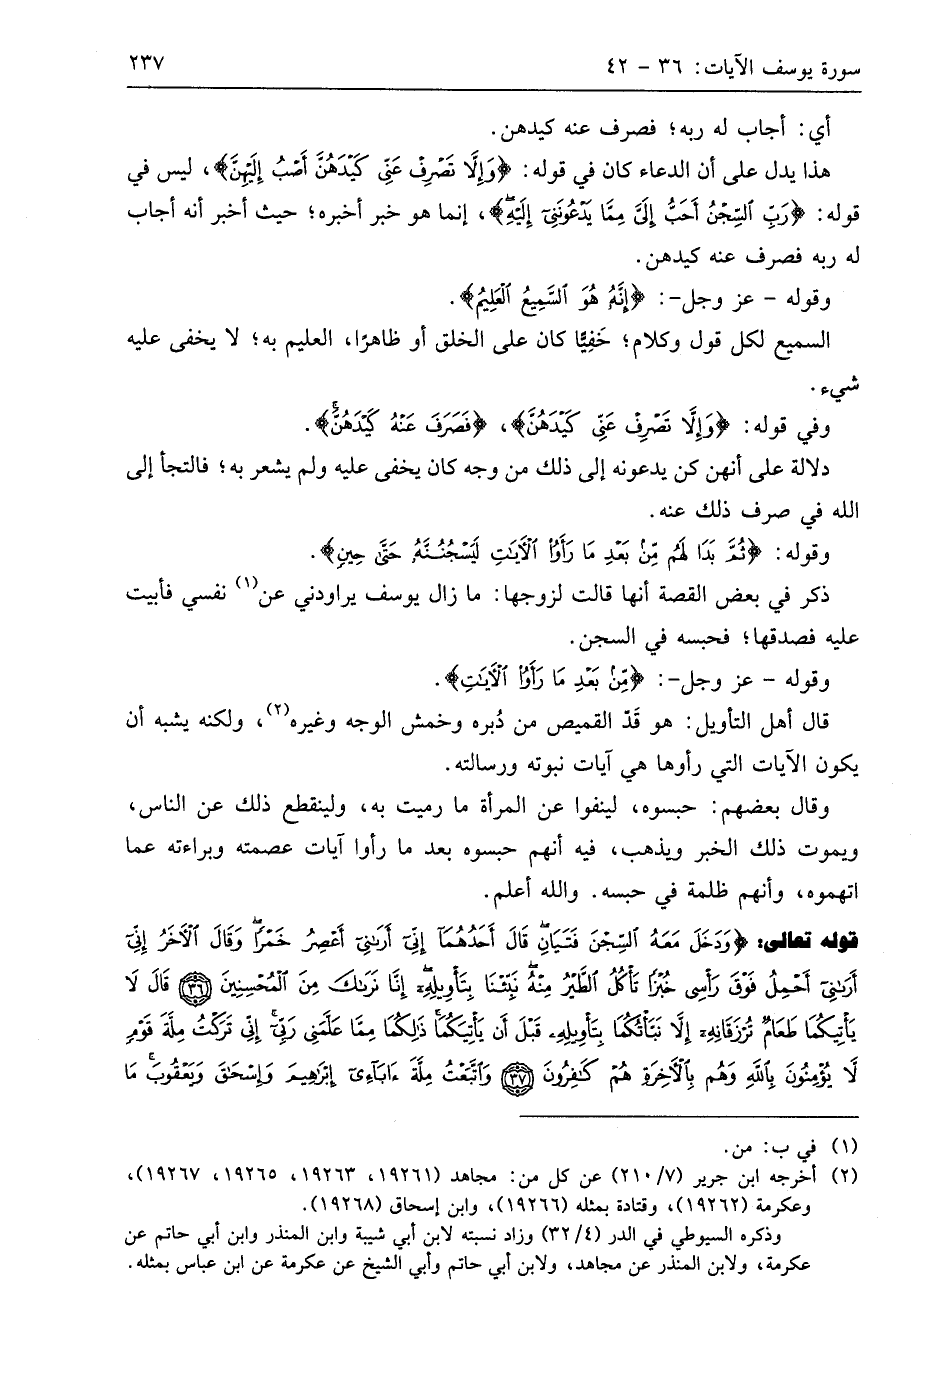 سورة يوسف الآيات: ٣٦ - ٤٢ ٢٣٧
أي: أجاب له ربه؛ فصرف عنه كيدهن.
هذا يدل على أن الدعاء كان في قوله: ﴿وَإِلَّا تَصْرِفْ عَنِّي كَيْدَهُنَّ أَصْبُ إِلَيْهِنَّ﴾، ليس في
قوله: ﴿رَبِّ ٱلسِّجْنُ أَحَبُّ إِلَىَّ مِمَّا يَدْعُونَنِىٓ إِلَيْهِۖ﴾، إنما هو خبر أخبره؛ حيث أخبر أنه أجاب
له ربه فصرف عنه كيدهن.
وقوله - عز وجل-: ﴿إِنَّهُۥ هُوَ ٱلسَّمِيعُ ٱلْعَلِيمُ﴾.
السميع لكل قول وكلام؛ خَفِيًّا كان على الخلق أو ظاهرًا، العليم به؛ لا يخفى عليه
شيء.
وفي قوله: ﴿وَإِلَّا تَصْرِفْ عَنِّى كَيْدَهُنَّ﴾، ﴿فَصَرَفَ عَنْهُ كَيْدَهُنَّۚ﴾.
دلالة على أنهن كن يدعونه إلى ذلك من وجه كان يخفى عليه ولم يشعر به؛ فالتجأ إلى
الله في صرف ذلك عنه.
وقوله: ﴿ثُمَّ بَدَا لَهُم مِّنۢ بَعْدِ مَا رَأَوُا۟ ٱلْـَٔايَٰتِ لَيَسْجُنُنَّهُۥ حَتَّىٰ حِينٍ﴾.
ذكر في بعض القصة أنها قالت لزوجها: ما زال يوسف يراودني عن(١) نفسي فأبيت
عليه فصدقها؛ فحبسه في السجن.
وقوله - عز وجل-: ﴿مِّنۢ بَعْدِ مَا رَأَوُا۟ ٱلْـَٔايَٰتِ﴾.
قال أهل التأويل: هو قَدّ القميص من دُبره وخمش الوجه وغيره(٢)، ولكنه يشبه أن
يكون الآيات التي رأوها هي آيات نبوته ورسالته.
وقال بعضهم: حبسوه، لينفوا عن المرأة ما رميت به، ولينقطع ذلك عن الناس،
ويموت ذلك الخبر ويذهب، فيه أنهم حبسوه بعد ما رأوا آيات عصمته وبراءته عما
اتهموه، وأنهم ظلمة في حبسه. والله أعلم.
قوله تعالى: ﴿وَدَخَلَ مَعَهُ ٱلسِّجْنَ فَتَيَانِۖ قَالَ أَحَدُهُمَآ إِنِّىٓ أَرَىٰنِىٓ أَعْصِرُ خَمْرًاۖ وَقَالَ ٱلْـَٔاخَرُ إِنِّىٓ
أَرَىٰنِىٓ أَحْمِلُ فَوْقَ رَأْسِى خُبْزًا تَأْكُلُ ٱلطَّيْرُ مِنْهُۖ نَبِّئْنَا بِتَأْوِيلِهِۦٓۖ إِنَّا نَرَىٰكَ مِنَ ٱلْمُحْسِنِينَ ٣٦ قَالَ لَا
يَأْتِيكُمَا طَعَامٌ تُرْزَقَانِهِۦٓ إِلَّا نَبَّأْتُكُمَا بِتَأْوِيلِهِۦ قَبْلَ أَن يَأْتِيَكُمَاۚ ذَٰلِكُمَا مِمَّا عَلَّمَنِى رَبِّىٓۚ إِنِّى تَرَكْتُ مِلَّةَ قَوْمٍ
لَّا يُؤْمِنُونَ بِٱللَّهِ وَهُم بِٱلْـَٔاخِرَةِ هُمْ كَٰفِرُونَ ٣٧ وَٱتَّبَعْتُ مِلَّةَ ءَابَآءِىٓ إِبْرَٰهِيمَ وَإِسْحَٰقَ وَيَعْقُوبَۚ مَا
(١) في ب: من.
(٢) أخرجه ابن جرير (٢١٠/٧) عن كل من: مجاهد (١٩٢٦١، ١٩٢٦٣، ١٩٢٦٥، ١٩٢٦٧)،
وعكرمة (١٩٢٦٢)، وقتادة بمثله (١٩٢٦٦)، وابن إسحاق (١٩٢٦٨).
وذكره السيوطي في الدر (٣٢/٤) وزاد نسبته لابن أبي شيبة وابن المنذر وابن أبي حاتم عن
عكرمة، ولابن المنذر عن مجاهد، ولابن أبي حاتم وأبي الشيخ عن عكرمة عن ابن عباس بمثله.